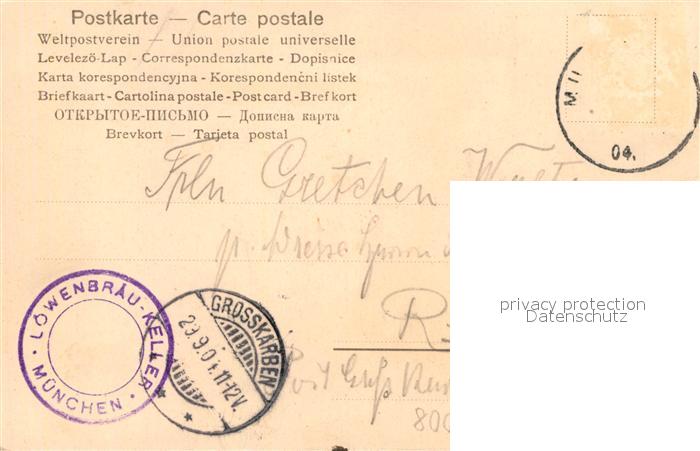 Postkarte — Carte postale
Weltpostverein — Union postale universelle
Levelező-Lap - Correspondenzkarte - Dopisnice
Karta korespondencyjna - Korespondenční lístek
Briefkaart - Cartolina postale - Post card - Brefkort
ОТКРЫТОЕ-ПИСЬМО — Дописна карта
Brevkort — Tarjeta postal
M. II
04.
Frln Gretchen
p.
R
LÖWENBRÄU-KELLER
MÜNCHEN
GROSSKARBEN
29.9.04.11-12V.
Post
privacy protection
Datenschutz